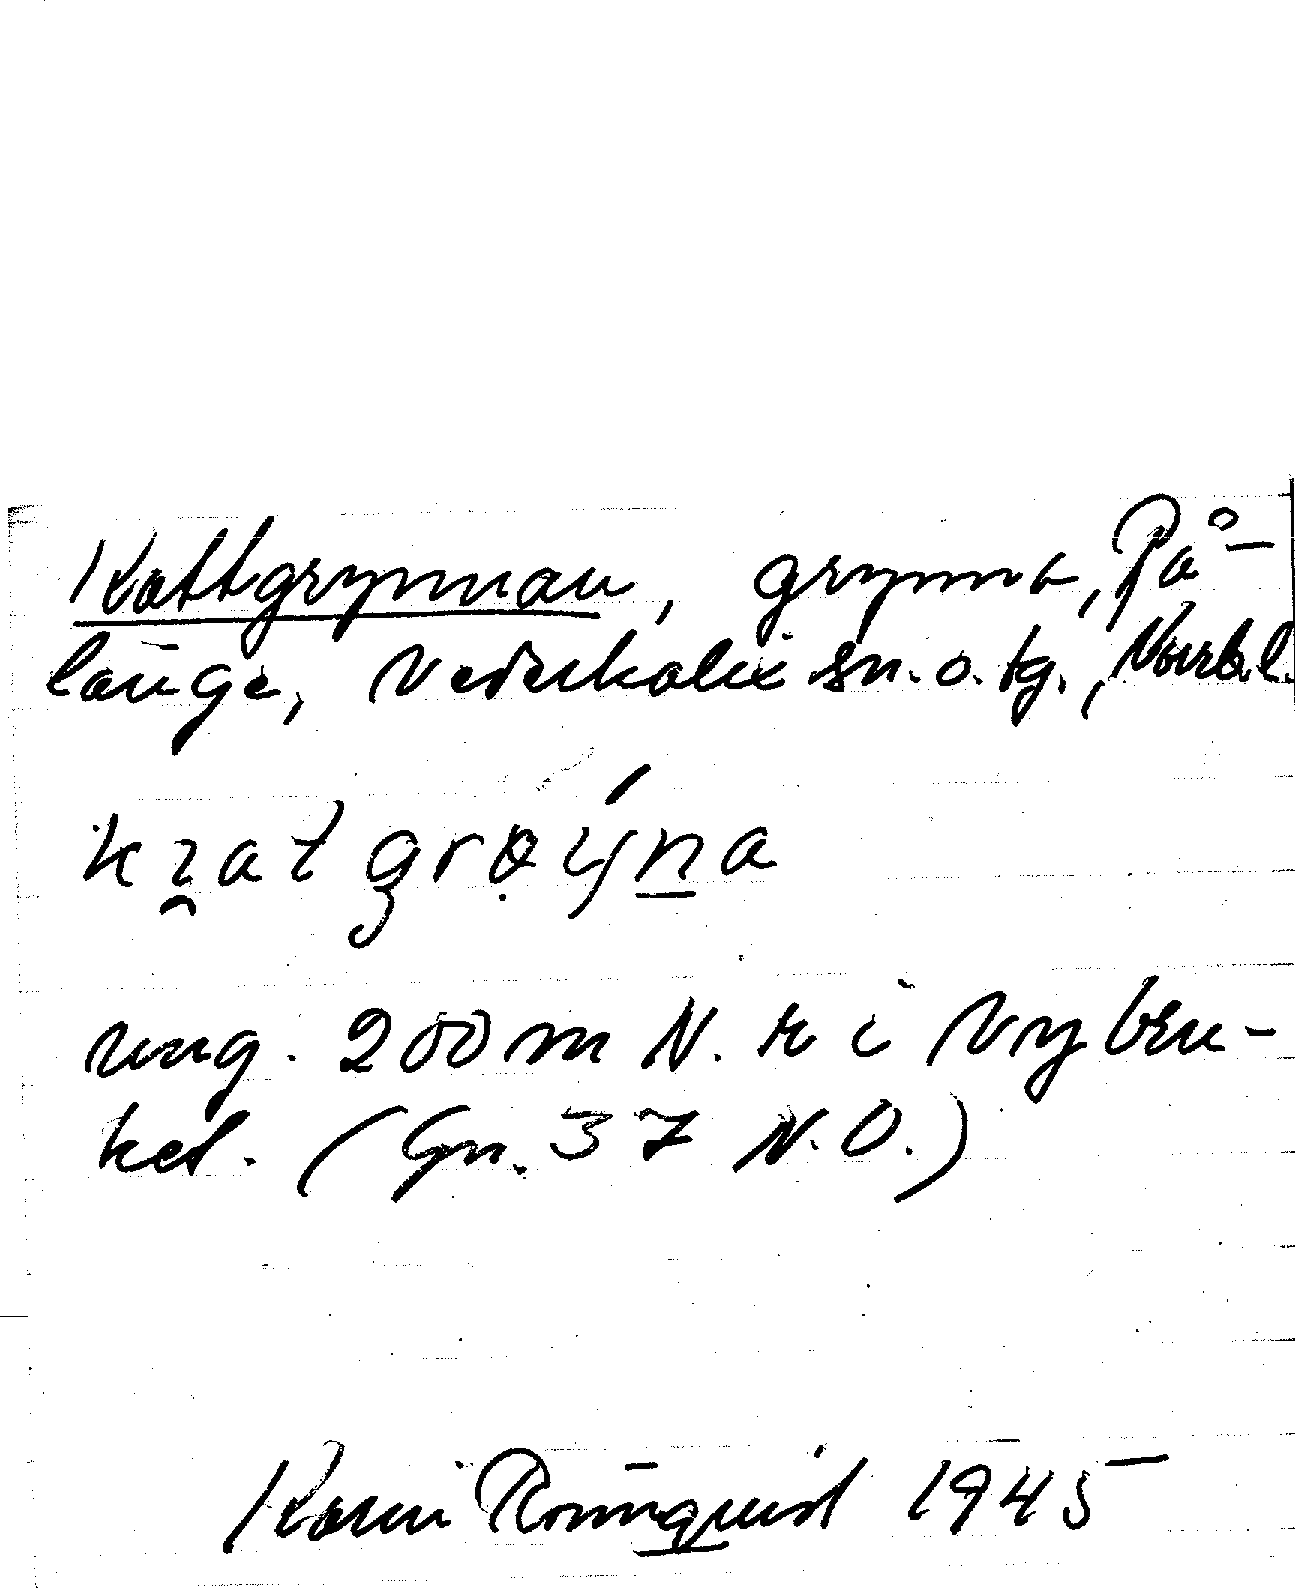 Kattgrynnan, grynna, På-
länge, Nederkalix sn. o. tg., Norrb. l.
ung. 200 m N. r i Nybru-
ket. (Gn. 37 N.O.)
Karin Rönnquist 1945